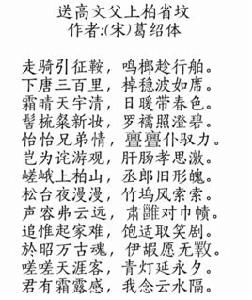 送高文父上柏省坟
作者:(宋)葛绍体
走骑引征鞍，鸣榔趁行舟。
下唐三百里，棹稳波如席。
霜晴天宇清，日暖带春色。
髻拢粲新妆，罗襦照澄碧。
怡怡兄弟情，亹亹仆驭力。
岂为诧游观，肝肠孝思激。
嵯峨上柏山，丞郎旧形魄。
松台夜漫漫，竹坞风索索。
声容弗云远，肃雝对巾帻。
追惟起家难，饱迋取笑剧。
於昭万古魂，伊嘏愿无斁。
嗟嗟天涯客，青灯延永夕。
君有霜露感，我念云水隔。